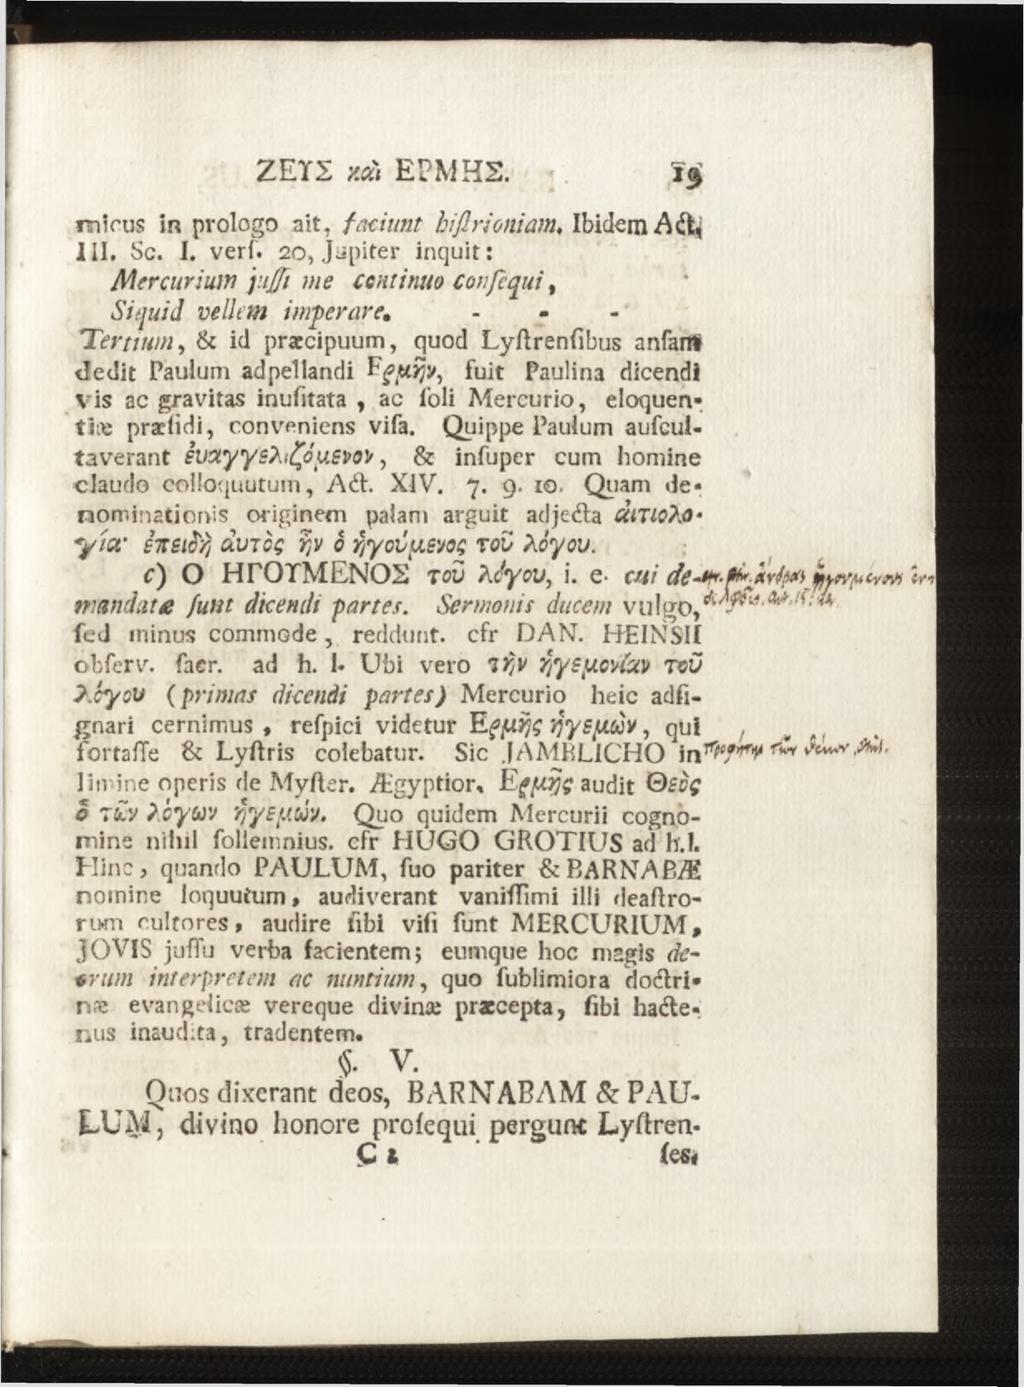 ΖΕΥΣ καὶ ΕΡΜΗΣ. 19
micus in prologo ait, faciunt hiſtrioniam. Ibidem Act.
III. Sc. I. verſ. 20, Jupiter inquit:
Mercurium juſſi me continuo conſequi,
Siquid vellem imperare. - - -
Tertium, & id præcipuum, quod Lyſtrenſibus anſam
dedit Paulum adpellandi Ερμῆν, fuit Paulina dicendi
vis ac gravitas inuſitata, ac ſoli Mercurio, eloquen-
tiæ præſidi, conveniens viſa. Quippe Paulum auſcul-
taverant ἐυαγγελιζόμενον, & inſuper cum homine
claudo colloquutum, Act. XIV. 7. 9. 10. Quam de-
nominationis originem palam arguit adjecta ἀιτιολο-
γία· ἐπειδὴ ἀυτὸς ἦν ὁ ἡγούμενος τοῦ λόγου.
c) Ο ΗΓΟΥΜΕΝΟΣ τοῦ λόγου, i. e. cui de- ἄνδρας ἡγουμένους ἐν
mandatæ ſunt dicendi partes. Sermonis ducem vulgo,
ſed minus commode, reddunt. cfr DAN. HEINSII
obſerv. ſacr. ad h. l. Ubi vero τὴν ἡγεμονίαν τοῦ
λόγου (primas dicendi partes) Mercurio heic adſi-
gnari cernimus, reſpici videtur Ερμῆς ἡγεμὼν, qui
fortaſſe & Lyſtris colebatur. Sic JAMBLICHO in
limine operis de Myſter. Ægyptior. Ερμῆς audit Θεὸς
ὁ τῶν λόγων ἡγεμών. Quo quidem Mercurii cogno-
mine nihil ſollemnius. cfr HUGO GROTIUS ad h. l.
Hinc, quando PAULUM, ſuo pariter & BARNABÆ
nomine loquutum, audiverant vaniſſimi illi deaſtro-
rum cultores, audire ſibi viſi ſunt MERCURIUM,
JOVIS juſſu verba facientem; eumque hoc magis de-
orum interpretem ac nuntium, quo ſublimiora doctri-
næ evangelicæ vereque divinæ præcepta, ſibi hacte-
nus inaudita, tradentem.
§. V.
Quos dixerant deos, BARNABAM & PAU-
LUM, divino honore proſequi pergunt Lyſtren-
C 2 ſes,